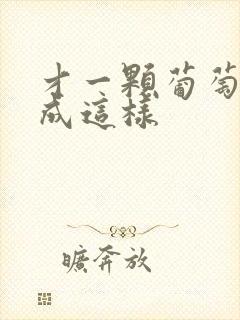 才一顆葡萄
成這樣
曠奔放